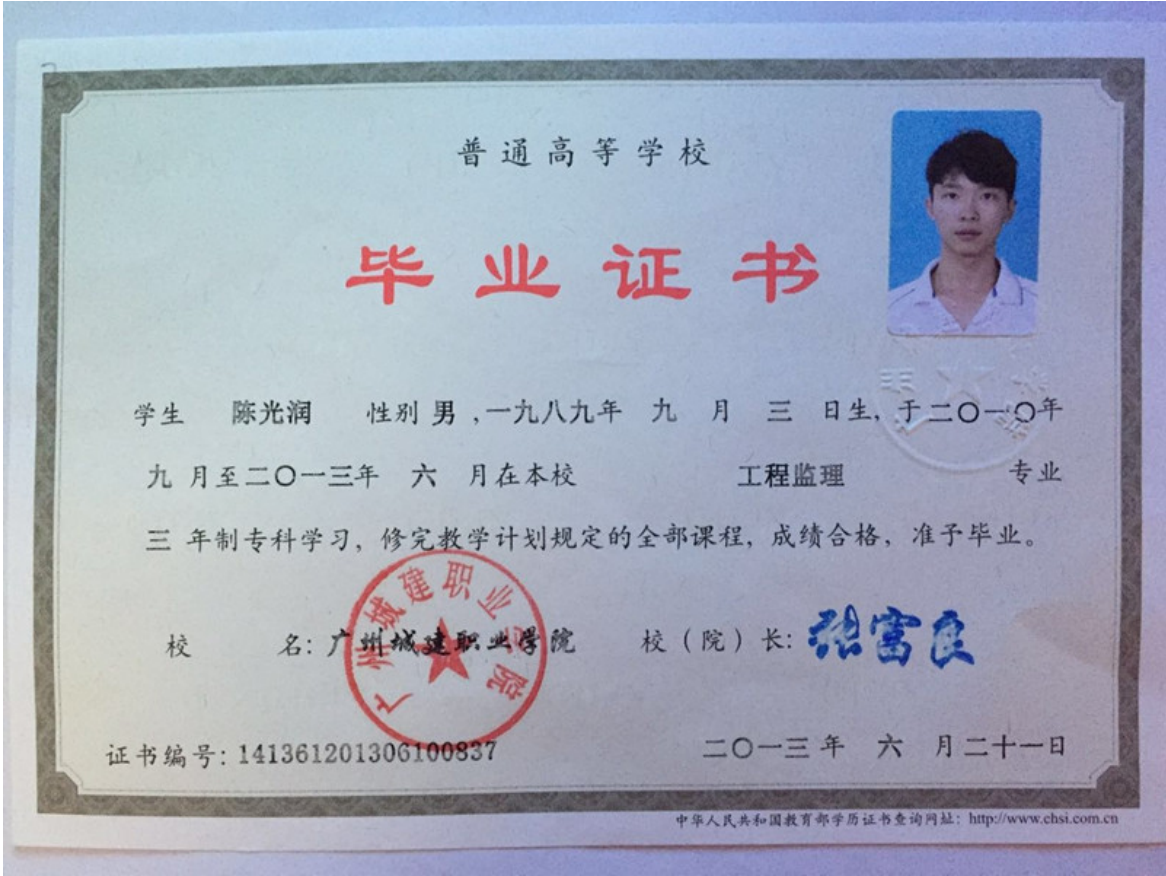 普通高等学校
毕业证书
学生 陈光润 性别 男 ,一九八九年 九 月 三 日生, 于二〇一〇年
九 月至二〇一三年 六 月在本校 工程监理 专业
三 年制专科学习, 修完教学计划规定的全部课程, 成绩合格, 准予毕业。
校 名: 广州城建职业学院 校（院）长: 张富良
广州城建职业学院
证书编号: 141361201306100837 二〇一三年 六 月二十一日
中华人民共和国教育部学历证书查询网址: http://www.chsi.com.cn